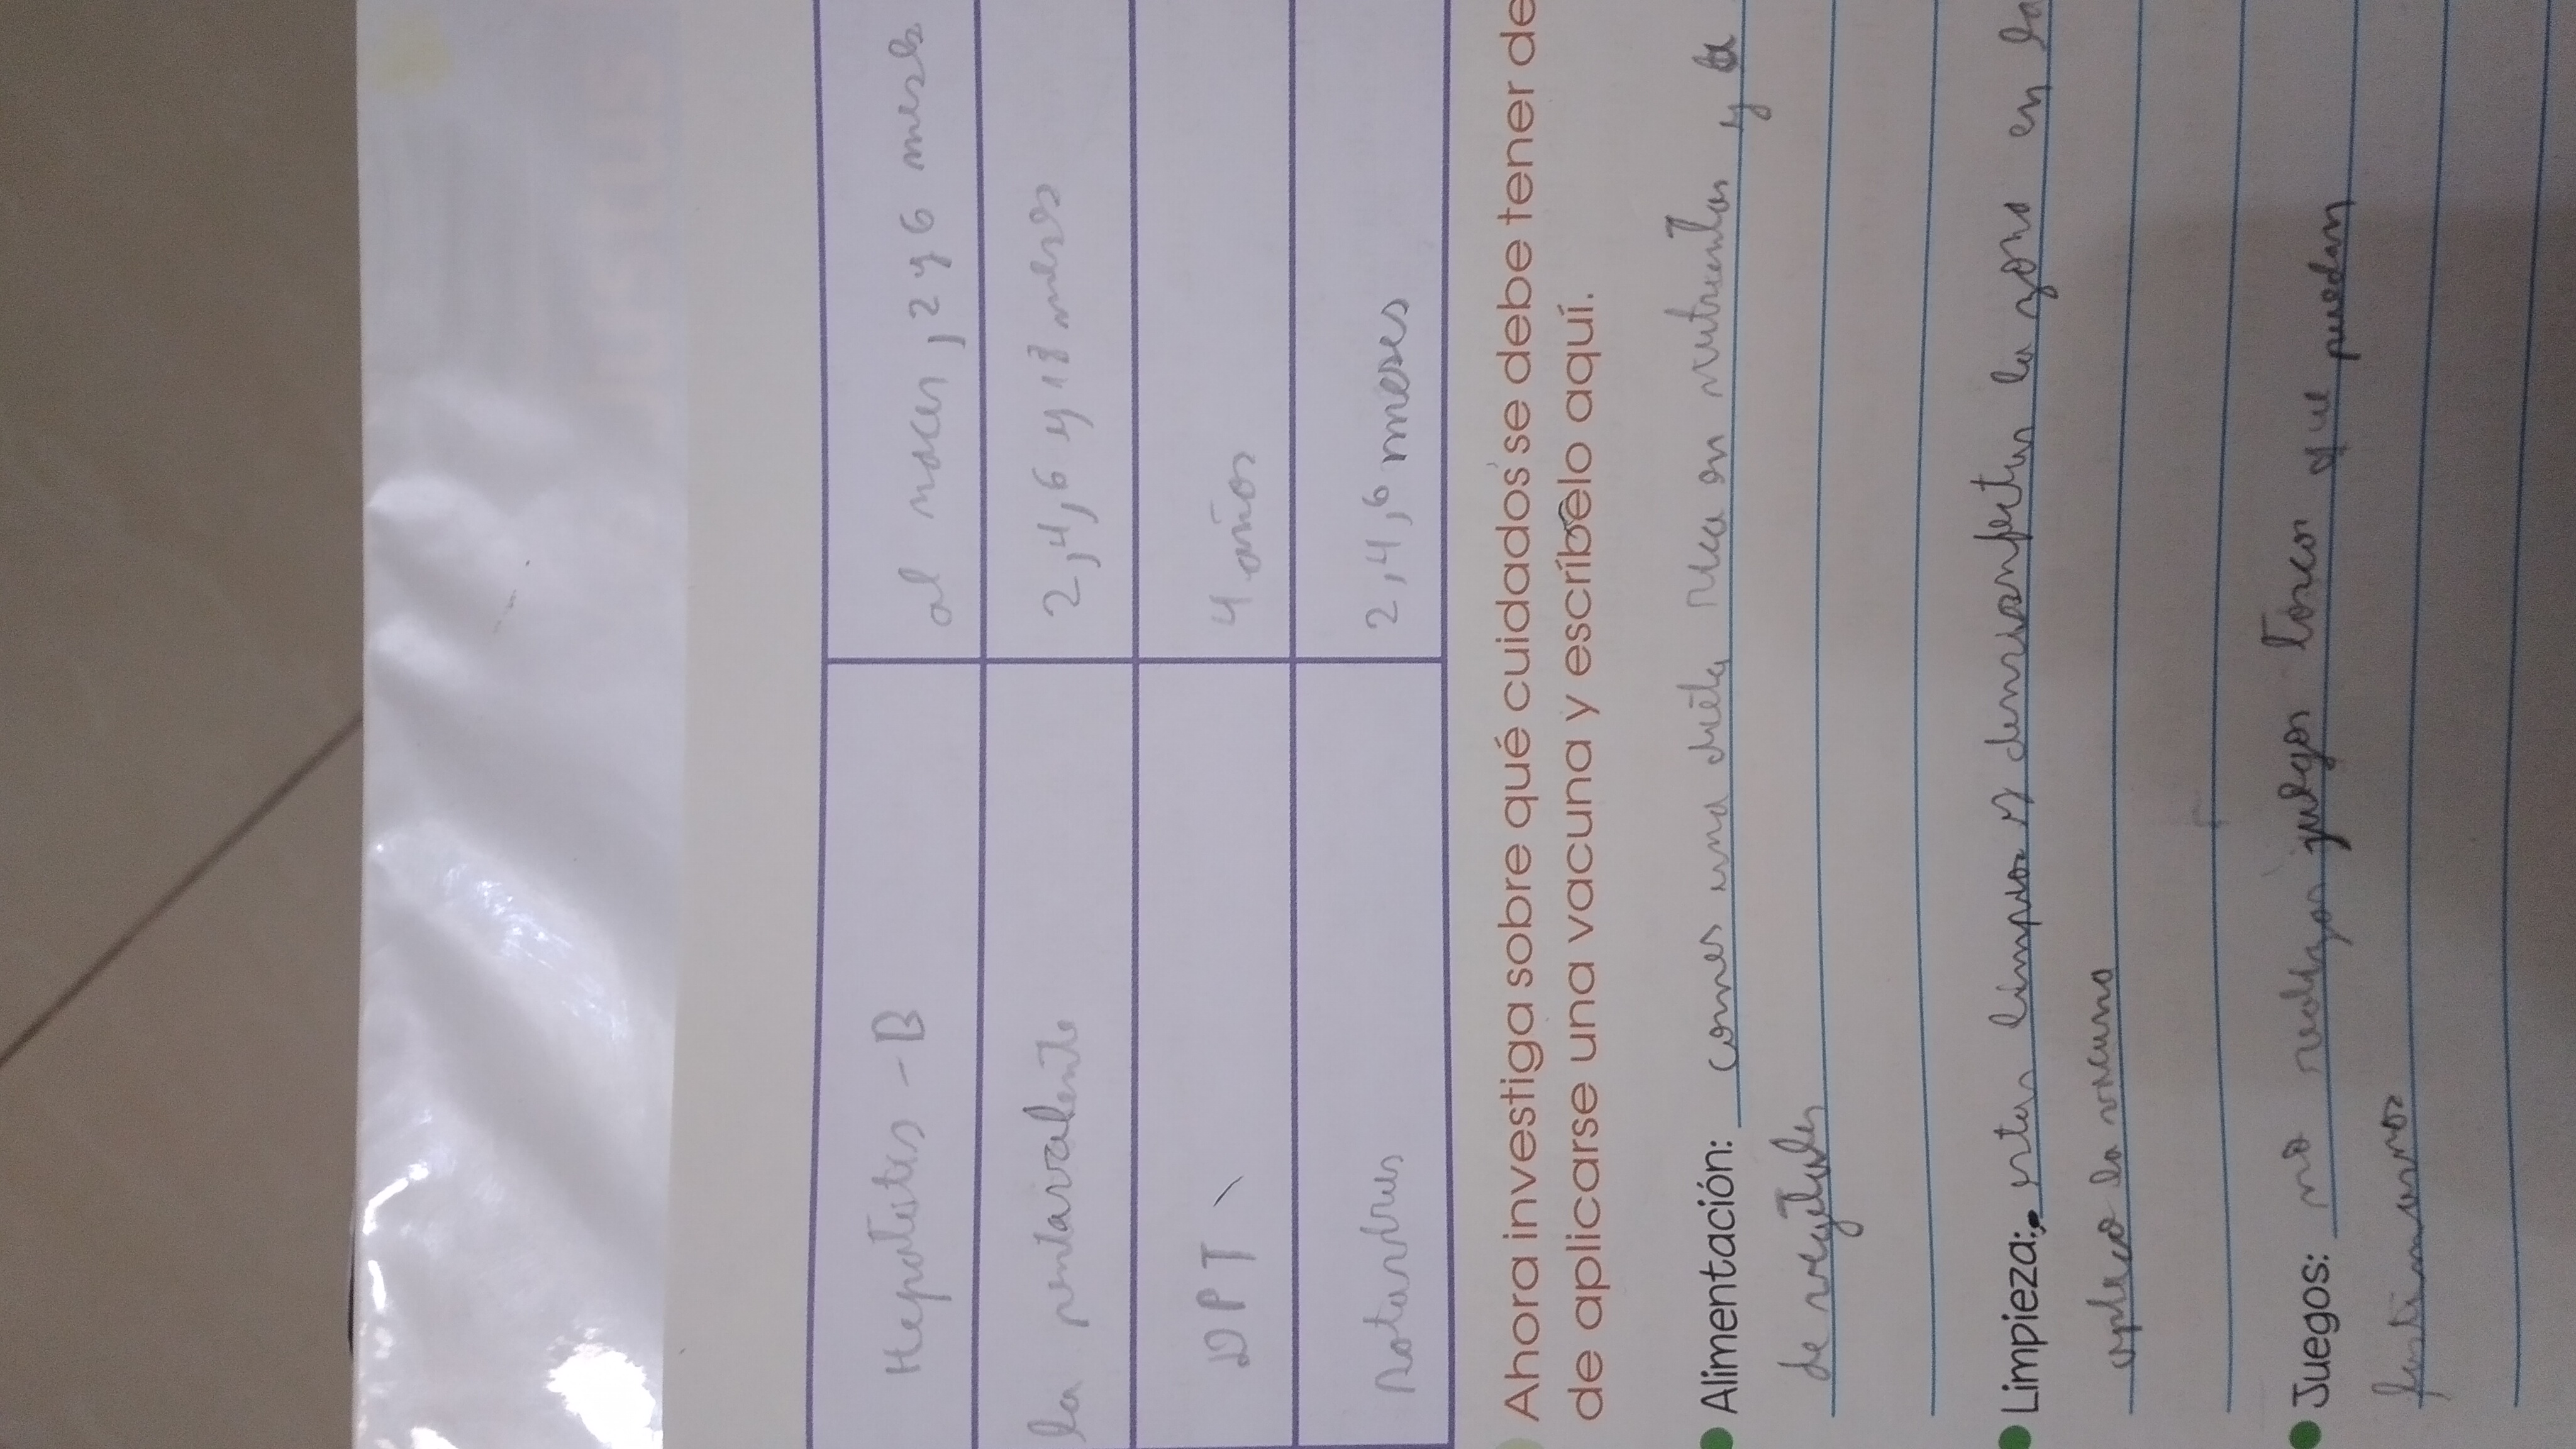 Hepatitis - B
al nacer, 2 y 6 meses
la pentavalente
2, 4, 6 y 18 meses
DPT
4 años
Rotavirus
2, 4, 6 meses
Ahora investiga sobre qué cuidados se debe tener de
de aplicarse una vacuna y escríbelo aquí.
Alimentación: comer una dieta rica en nutrientes y
de vegetales
Limpieza: estar limpios y la zona en la
aplico la vacuna
Juegos: no realizar juegos toscos que puedan
lastimarnos